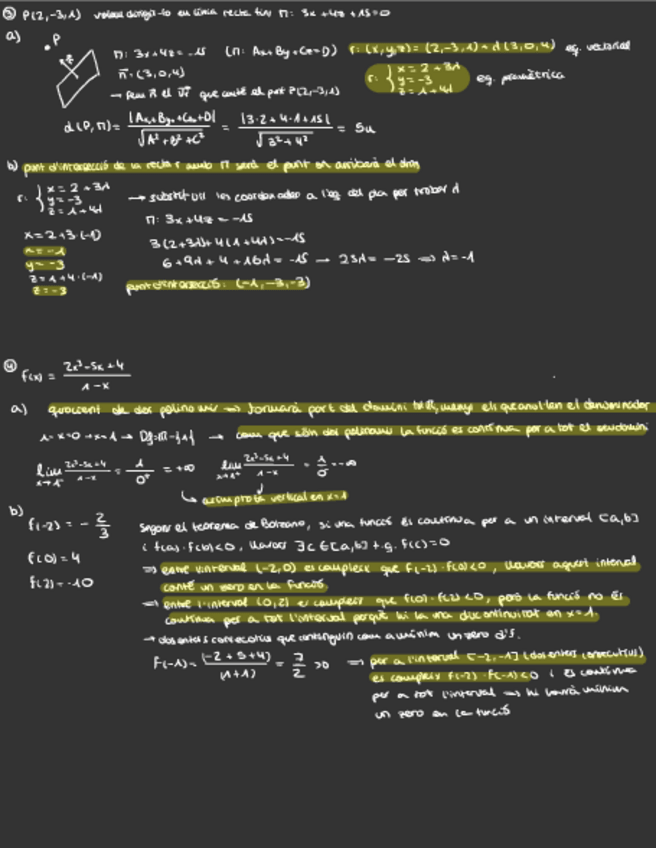 ③ P(2,-3,1) volem dirigir-lo en línia recta fins Π: 3x+4z+15=0
a)
•P
Π: 3x+4z=-15 (Π: Ax+By+Cz=D) r: (x,y,z) = (2,-3,1)+λ(3,0,4) eq. vectorial
n⃗ = (3,0,4)
r: { x = 2+3λ
y = -3
z = 1+4λ
eq. paramètrica
→ que conté el punt P(2,-3,1)
d(P,Π) = |Ax+By+Cz+D| / √(A²+B²+C²) = |3·2+4·1+15| / √(3²+4²) = 5u
b) punt d'intersecció de la recta r amb Π serà el punt on arribarà el
r: { x = 2+3λ
y = -3
z = 1+4λ
→ substituïm les coordenades a l'eq. del pla per trobar λ
Π: 3x+4z = -15
x = 2+3·(-1)
3(2+3λ)+4(1+4λ)=-15
x = -1
6+9λ+4+16λ = -15 → 25λ = -25 ⇒ λ=-1
y = -3
z = 1+4·(-1)
z = -3
punt d'intersecció: (-1,-3,-3)
④ f(x) = (2x³-5x+4) / (1-x)
a) quocient de dos polinomis ⇒ formarà part del domini menys els que anul·len el denominador
1-x=0 → x=1 → Df=ℝ-{1} → com que són dos polinomis la funció és contínua per a tot el seu domini
lim x→1⁻ (2x³-5x+4)/(1-x) = 1/0⁺ = +∞ lim x→1⁺ (2x³-5x+4)/(1-x) = 1/0⁻ = -∞
↳ asímptota vertical en x=1
b)
f(-2) = -2/3
Segons el teorema de Bolzano, si una funció és contínua per a un interval [a,b]
f(0) = 4
i f(a)·f(b)<0, llavors ∃c∈[a,b] t.q. f(c)=0
f(2) = -10
⇒ entre l'interval (-2,0) es compleix que f(-2)·f(0)<0, llavors aquest interval
conté un zero en la funció
⇒ entre l'interval (0,2) es compleix que f(0)·f(2)<0, però la funció no és
contínua per a tot l'interval perquè hi ha una discontinuïtat en x=1.
→ dos enters consecutius que continguin com a mínim un zero d'f.
f(-1) = (-2+5+4)/(1+1) = 7/2 >0 ⇒ per a l'interval [-2,-1] (dos enters consecutius)
es compleix f(-2)·f(-1)<0 i és contínua
per a tot l'interval ⇒ hi haurà mínim
un zero en la funció